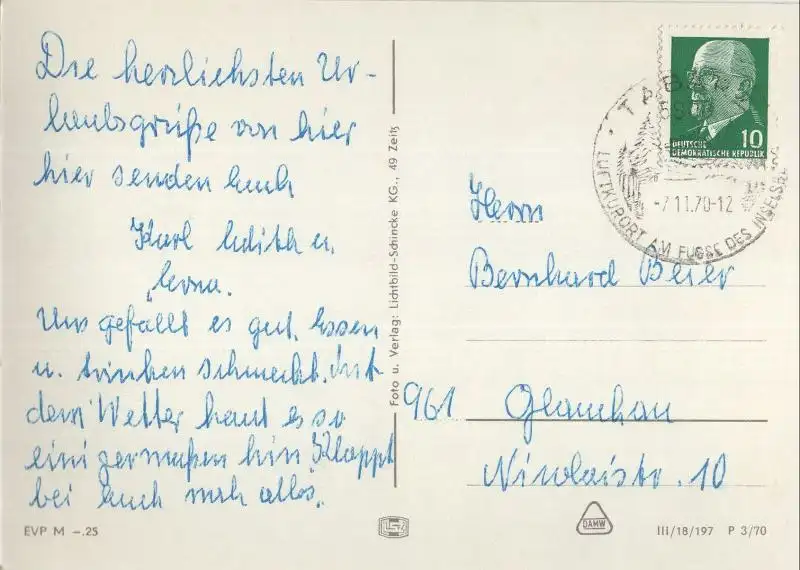 Die herzlichsten Ur-
laubsgrüße von hier
hier senden Euch
Karl Edith u.
Erna.
Uns gefällt es gut. Essen
u. trinken schmeckt. Mit
dem Wetter haut es so
einigermaßen hin. Klappt
bei Euch noch alles.
EVP M –.25
Foto u. Verlag: Lichtbild-Schincke KG., 49 Zeitz
10
DEUTSCHE
DEMOKRATISCHE REPUBLIK
TABARZ
58
-7.11.70-12
LUFTKURORT AM FUSSE DES INSELSB.
Herrn
Bernhard Beier
961 Glauchau
Nicolaistr. 10
DAMW
III/18/197 P 3/70